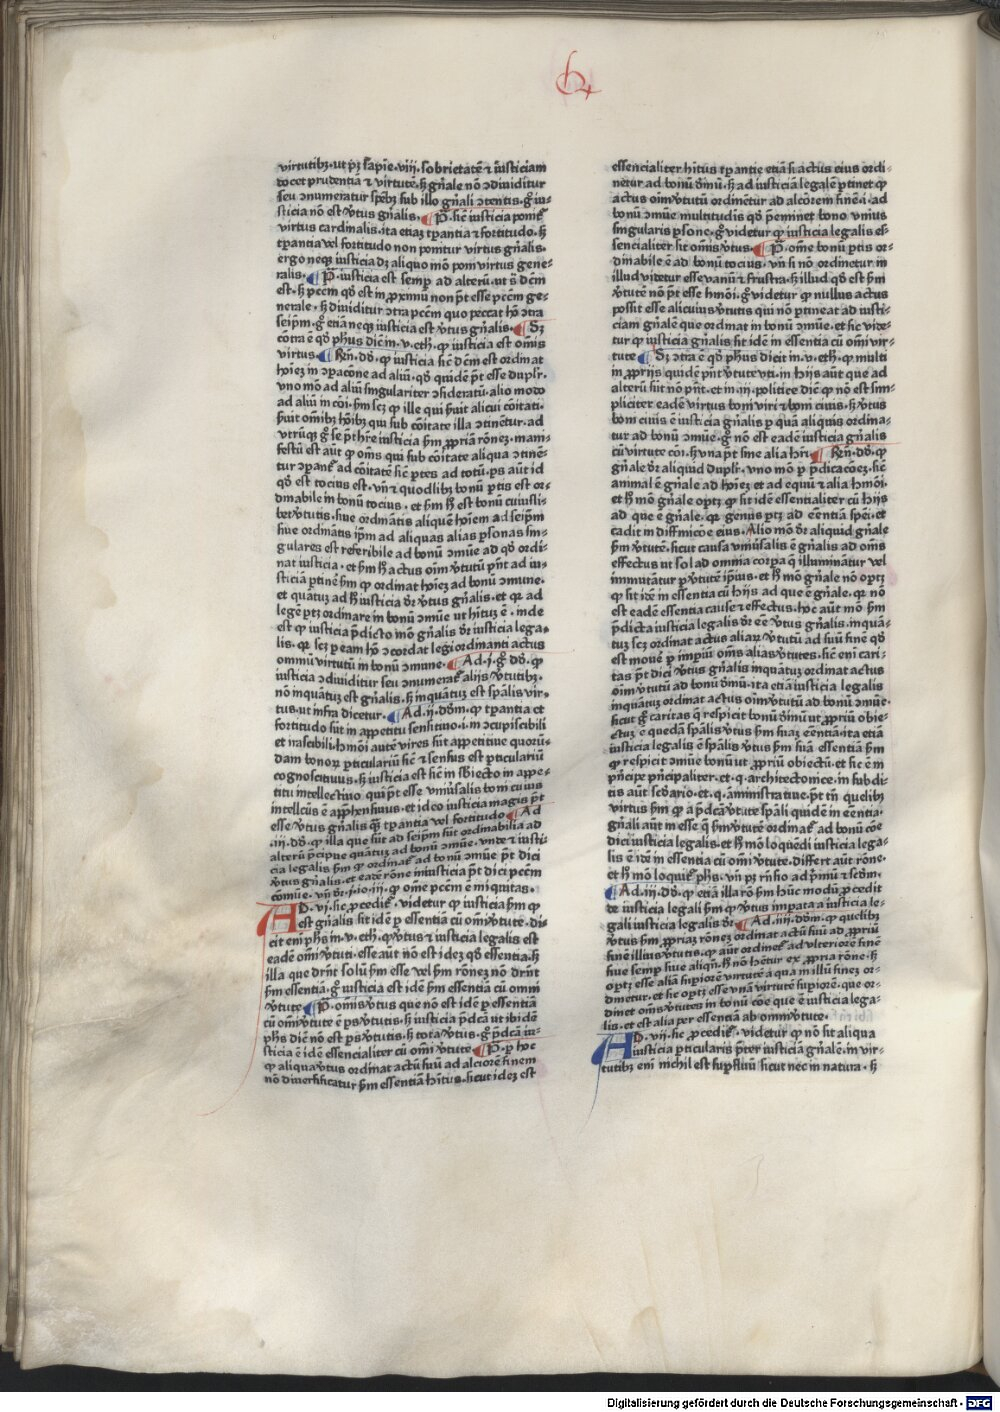 virtutibꝫ · ut pꝫ sapie · viij · sobrietatē ⁊ iusticiam
docet prudentia ⁊ virtutē · sꝫ gn̄ale nō ↄdiuiditur
seu ↄnumeratur spēbꝫ sub illo gn̄ali ↄtentis · gͦ iu-
sticia nō est v̓tus gn̄alis · ¶ P̄ · sic̄ iusticia ponit̄
virtus cardinalis · ita etiaꝫ tꝑantia ⁊ fortitudo · sꝫ
tꝑantia vel fortitudo non ponitur virtus gn̄alis ·
ergo neqꝫ iusticia dꝫ aliquo mō poni virtus gene-
ralis · ¶ P̄ · iusticia est semꝑ ad alterū · ut s̄ dc̄m
est · sꝫ pcc̄m qd̄ est in ꝓximū non pt̄ esse pcc̄m ge-
nerale · sꝫ diuiditur ↄtra pcc̄m quo peccat hō ↄtra
seip̄m · gͦ etiā neqꝫ iusticia est v̓tus gn̄alis · ¶ Sꝫ
cōtra ē qd̄ ph̄us dic̄ in · v · eth̄ · ꝙ iusticia est om̄is
virtus · ¶ Rn̄ · dō · ꝙ iusticia sic̄ dc̄m est ordinat
hoīeꝫ in ↄꝑacōne ad aliū · qd̄ quidē pt̄ esse duplr̄ ·
vno mō ad aliū singulariter ↄsideratū · alio modo
ad aliū in cōi · s̄m scꝫ ꝙ ille qui s̄uit alicui cōitati ·
s̄uit om̄ibꝫ hoībꝫ qui sub cōitate illa ↄtinētur · ad
vtrūqꝫ gͦ se pt̄ h̄re iusticia s̄m ꝓpriā rōneꝫ · mani-
festū est aūt ꝙ om̄s qui sub cōitate aliqua ↄtinē-
tur ↄꝑant̄ ad cōitatē sic̄ ꝑtes ad totū · ꝑs aūt id
qd̄ est tocius est · vn̄ ⁊ quodlibꝫ bonū ꝑtis est or-
dinabile in bonū tocius · et s̄m hͨ est bonū cuiusli-
bet v̓tutis · siue ordināris aliquē hoīem ad seip̄m
siue ordinātis ip̄m ad aliquas alias ꝑsonas sin-
gulares est referibile ad bonū ↄmūe ad qd̄ ordi-
nat iusticia · et s̄m hͨ actus oīm v̓tutū pn̄t ad iu-
sticiā ꝑtinē s̄m ꝙ ordinat hoīeꝫ ad bonū ↄmune ·
et quātuꝫ ad hͨ iusticia dr̄ v̓tus gn̄alis · et qꝛ ad
legē ꝑtꝫ ordinare in bonū ↄmūe ut h̄ituꝫ ē · inde
est ꝙ iusticia p̄dicto mō gn̄alis dr̄ iusticia lega-
lis · qꝛ scꝫ ꝑ eam hō ↄcordat legi ordinanti actus
omniū virtutū in bonū ↄmune · ¶ Ad · j · gͦ dō · ꝙ
iusticia ↄdiuiditur seu ↄnumerat̄ alijs v̓tutibꝫ ·
nō inquātuꝫ est gn̄alis · sꝫ inquātuꝫ est sp̄alis vir-
tus · ut infra dicetur · ¶ Ad · ij · dō̄m · ꝙ tꝑantia et
fortitudo sūt in appetitu sensitiuo · i · in ↄcupiscibili
et irascibili · hͨmōi autē vires sūt appetitiue quorū-
dam bonoꝝ ꝑticulariū sic̄ ⁊ sensus est ꝑticulariū
cognoscitiuus · sꝫ iusticia est sic̄ in sb̄iecto in appe-
titu intellectiuo qui pt̄ esse vniu̓salis boni cuius
intellcūs ē app̄hensiuus · et ideo iusticia magis pt̄
esse v̓tus gn̄alis qꝫ tꝑantia vel fortitudo ¶ Ad
· iij · dō · ꝙ illa que sūt ad seip̄m sūt ordinabilia ad
alterū p̄cipue quātuꝫ ad bonū ↄmūe · vnde ⁊ iusti-
cia legalis s̄m ꝙ ordinat̄ ad bonū ↄmūe pt̄ dici
v̓tus gn̄alis · et eadē rōne iniusticia pt̄ dici pcc̄m
cōmūe · vn̄ dr̄ · j · io · iij · ꝙ om̄e pcc̄m ē iniquitas ·
AD · vj · sic ꝓcedit̄ · videtur ꝙ iusticia s̄m ꝙ
est gn̄alis sit idē ꝑ essentiā cū om̄i v̓tute · di-
cit enī ph̄s in · v · eth̄ · ꝙ v̓tus ⁊ iusticia legalis est
eadē om̄i v̓tuti · esse aūt nō est · idez qd̄ essentia · sꝫ
illa que drn̄t solū s̄m esse vel s̄m rōneꝫ nō drn̄t
s̄m essentiā · gͦ iusticia est idē s̄m essentiā cū omni
v̓tute ¶ P̄ · om̄is v̓tus que nō est idē ꝑ essentiā
cū om̄i v̓tute ē ps v̓tutis · sꝫ iusticia p̄dcā ut ibidē
ph̄s dic̄ nō est ps v̓tutis · sꝫ tota v̓tus · gͦ p̄dcā iu-
sticia ē idē essencialiter cū om̄i v̓tute ¶ P̄ · ꝑ hoc
ꝙ aliqua v̓tus ordinat actū suū ad alciorē finem
nō diuersificatur s̄m essentiā h̄itus · sicut idez est
essencialiter h̄itus tꝑantie etiā si actus eius ordi-
netur ad bonū diuinū · sꝫ ad iusticiā legalē ꝑtinet ꝙ
actus oīm v̓tutū ordinētur ad alciorē finē · i · ad
bonū ↄmūe multitudis qd̄ p̄eminet bono vnius
singularis ꝑsone · gͦ videtur ꝙ iusticia legalis es-
sencialiter sit om̄is v̓tus · ¶ P̄ · om̄e bonū ꝑtis or-
dinabile ē ad bonū tocius · vn̄ si nō ordinetur in
illud videtur esse vanū ⁊ frustra · sꝫ illud qd̄ est s̄m
v̓tutē nō pt̄ esse hͨmōi · gͦ videtur ꝙ nullus actus
possit esse alicuius v̓tutis qui nō ꝑtineat ad iusti-
ciam gn̄alē que ordinat in bonū ↄmūe · et sic vide-
tur ꝙ iusticia gn̄alis sit idē in essentia cū om̄i vir-
tute ¶ Sꝫ ↄtra ē qd̄ ph̄us dicit in · v · eth̄ · ꝙ multi
in ꝓprijs quidē pn̄t v̓tute vti · in hijs aūt que ad
alterū sūt nō pn̄t · et in · iij · politice dic̄ ꝙ nō est sim-
pliciter eadē virtus boni viri ⁊ boni ciuis · sꝫ v̓tus
boni ciuis ē iusticia gn̄alis ꝑ quā aliquis ordina-
tur ad bonū ↄmūe · gͦ nō est eadē iusticia gn̄alis
cū virtute cōi · sꝫ vna pt̄ sine alia h̄ri · ¶ Rn̄ · dō · ꝙ
gn̄ale dr̄ aliquid duplr̄ · vno mō ꝑ p̄dicacōeꝫ · sic̄
animal ē gn̄ale ad hoīeꝫ et ad equū ⁊ alia hͨmōi ·
et hͨ mō gn̄ale oꝑtꝫ ꝙ sit idē essentialiter cū hijs
ad que ē gn̄ale · qꝛ genus ꝑtꝫ ad eēntiā spēi · et
cadit in diffinicōe eius · Alio mō dr̄ aliquid gn̄ale
s̄m v̓tutē · sicut causa vniu̓salis ē gn̄alis ad om̄s
effectus ut sol ad omnia corpa q̄ illuminātur vel
immutātur ꝑ v̓tutē ip̄ius · et hͨ mō gn̄ale nō oꝑtꝫ
ꝙ sit idē in essentia cū hijs ad que ē gn̄ale · qꝛ nō
est eadē essentia cause ⁊ effectus · hoc aūt mō s̄m
p̄dicta iusticia legalis dr̄ eē v̓tus gn̄alis · inquā-
tuꝫ scꝫ ordinat actus aliaꝝ v̓tutū ad suū finē qd̄
est mouē ꝑ imꝑiū om̄s alias v̓tutes · sic̄ enī cari-
tas pt̄ dici v̓tus gn̄alis inquātuꝫ ordinat actus
oīm v̓tutū ad bonū diuinū · ita etiā iusticia legalis
inquātuꝫ ordinat actus oīm v̓tutū ad bonū ↄmūe ·
sicut gͦ caritas q̄ respicit bonū diuinū ut ꝓpriū obie-
ctuꝫ ē quedā sp̄alis v̓tus s̄m suaꝫ eēntiā · ita etiā
iusticia legalis ē sp̄alis v̓tus s̄m suā essentiā s̄m
ꝙ respicit ↄmūe bonū ut ꝓpriū obiectū · et sic ē in
pn̄cipe pn̄cipaliter · et · q · architectonice · in subdi-
tis aūt scd̄ario · et · q · aministratiue · pt̄ tn̄ quelibꝫ
virtus s̄m ꝙ a p̄dcā v̓tute sp̄ali quidē in eēntia ·
gn̄ali aūt in esse q̄ s̄m v̓tutē ordinat̄ ad bonū cōe
dici iusticia legalis · et hͨ mō loquēdi iusticia lega-
lis ē idē in essentia cū om̄i v̓tute · differt aūt rōne ·
et hͨ mō loquit̄ ph̄s · vn̄ pꝫ rn̄sio ad p̄mū ⁊ scd̄m ·
¶ Ad · iij · dō · ꝙ etiā illa rō s̄m hūc modū ꝓcedit
de iusticia legali s̄m ꝙ v̓tus imꝑata a iusticia le-
gali iusticia legalis dr̄ ¶ Ad · iiij · dō̄m · ꝙ quelibꝫ
v̓tus s̄m ꝓpriaꝫ rōneꝫ ordinat actū suū ad ꝓpriū
finē illius v̓tutis · ꝙ aūt ordinet̄ ad vlteriorē finē
siue semꝑ siue aliqn̄ · hͨ nō h̄etur ex ꝓpria rōne · sꝫ
oꝑtꝫ esse aliā suꝑiorē virtutē a qua in illū fineꝫ or-
dinetur · et sic oꝑtꝫ esse vnā virtutē suꝑiorē que or-
dinet om̄s v̓tutes in bonū cōe que ē iusticia lega-
lis · et est alia per essentiā ab om̄i v̓tute ·
AD · vij · sic ꝓcedit̄ · videtur ꝙ nō sit aliqua
iusticia ꝑticularis p̄ter iusticiā gn̄alē · in vir-
tutibꝫ enī nichil est suꝑfluū sicut nec in natura · sꝫ
Digitalisierung gefördert durch die Deutsche Forschungsgemeinschaft - DFG